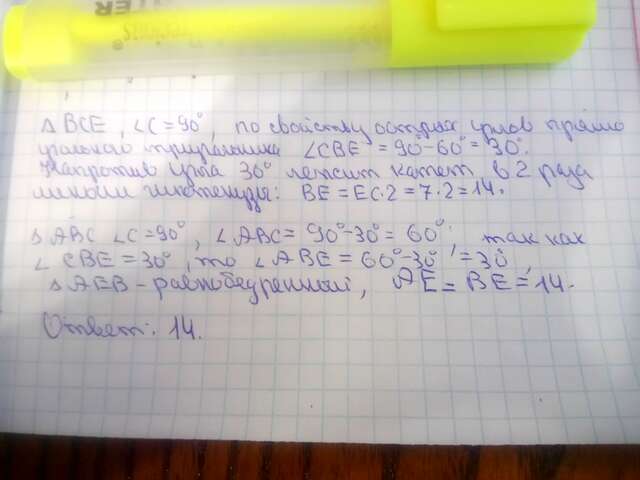 △ BCE, ∠C = 90°, по свойству острых углов прямо
угольного треугольника ∠CBE = 90°-60° = 30°.
Напротив угла 30° лежит катет в 2 раза
меньший гипотенузы: BE = EC·2 = 7·2 = 14.
△ ABC ∠C = 90°, ∠ABC = 90°-30° = 60°, так как
∠ CBE = 30°, то ∠ ABE = 60°-30° = 30°,
△ AEB - равнобедренный, AE = BE = 14.
Ответ: 14.